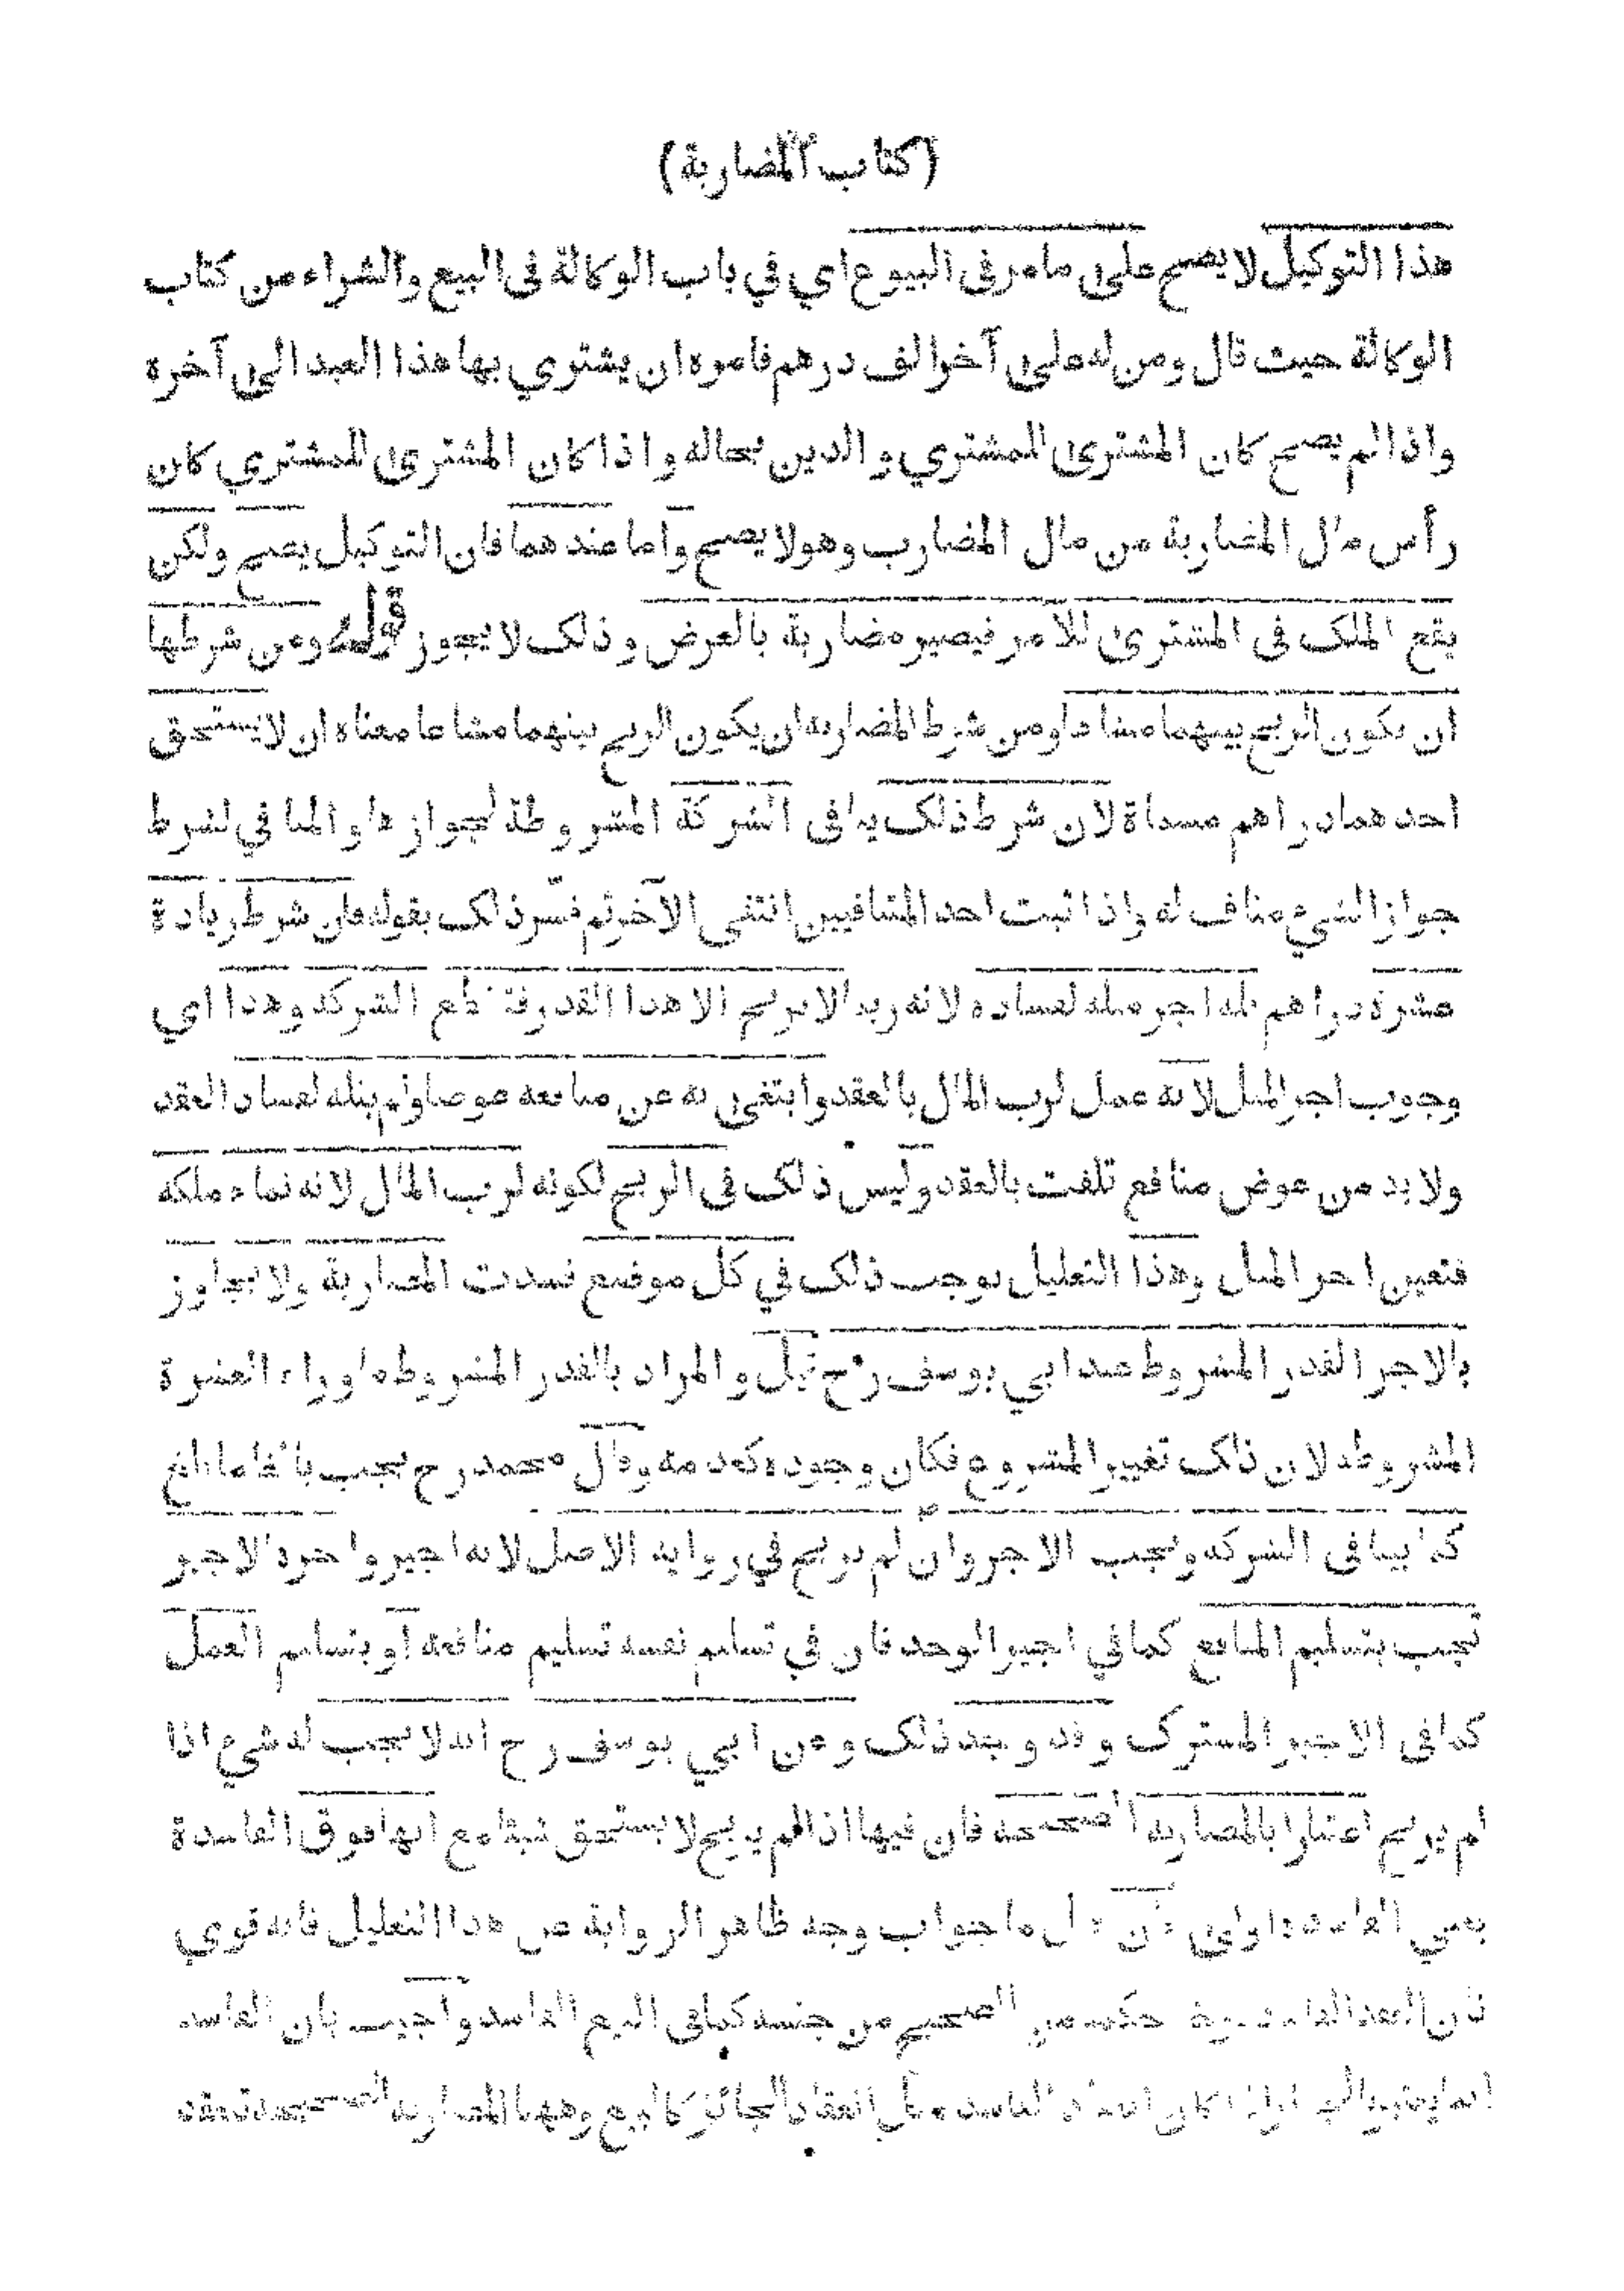 (كتاب المضاربة)
هذا التوكيل لا يصح على ما مر في البيوع اي في باب الوكالة في البيع والشراء من كتاب
الوكالة حيث قال ومن له على آخر الف درهم فامره ان يشتري بها هذا العبد الى آخره
واذا لم يصح كان المشترى للمشتري والدين بحاله واذا كان المشترى للمشتري كان
رأس مال المضاربة من مال المضارب وهو لا يصح وأما عند هما فان التوكيل يصح ولكن
يقع الملك في المشترى للآمر فيصير مضاربة بالعرض وذلك لا يجوز قوله ومن شرطها
ان يكون الربح بينهما مشاعا ومن شرط المضاربة ان يكون الربح بينهما مشاعا معناه ان لا يستحق
احد هما دراهم مسماة لان شرط ذلك ينافى الشركة المشروطة لجوازها والمنافي لشرط
جواز الشيء مناف له واذا ثبت احد المتنافيين انتفى الآخر ثم فسر ذلك بقوله فان شرط زيادة
عشرة دراهم فله اجر مثله لفساده لانه ربما لا يربح الا هذا القدر فتنقطع الشركة وهذا اي
وجوب اجر المثل لانه عمل لرب المال بالعقد وابتغى به عن منافعه عوضا ولم ينله لفساد العقد
ولا بد من عوض منافع تلفت بالعقد وليس ذلك في الربح لكونه لرب المال لانه نماء ملكه
فتعين اجر المثل وهذا التعليل يوجب ذلك في كل موضع فسدت المضاربة ولا يجاوز
بالاجر القدر المشروط عند ابي يوسف رح قيل والمراد بالقدر المشروط ما وراء العشرة
المشروطة لان ذلك تغيير المشروع فكان وجوده كعدمه وقال محمد رح يجب بالغا ما بلغ
كما بينا في الشركة ويجب الاجر وان لم يربح في رواية الاصل لانه اجير واجرة الاجير
تجب بتسليم المنافع كما في اجير الوحد فان في تسليم نفسه تسليم منافعه أو بتسليم العمل
كما في الاجير المشترك وقد وجد ذلك وعن ابي يوسف رح انه لا يجب له شيء اذا
لم يربح اعتبارا بالمضاربة الصحيحة فان فيها اذا لم يربح لا يستحق شيئا مع انها فوق الفاسدة
يعني الفاسدة اولى فان قيل ما جواب وجه ظاهر الرواية عن هذا التعليل فانه قوي
فان العقد الفاسد يؤخذ حكمه من الصحيح من جنسه كما في البيع الفاسد وأجيب بان الفاسد
انما يعتبر بالجائز اذا كان انعقاد الفاسد مثل انعقاد الجائز كالبيع وههنا المضاربة الصحيحة تنعقد